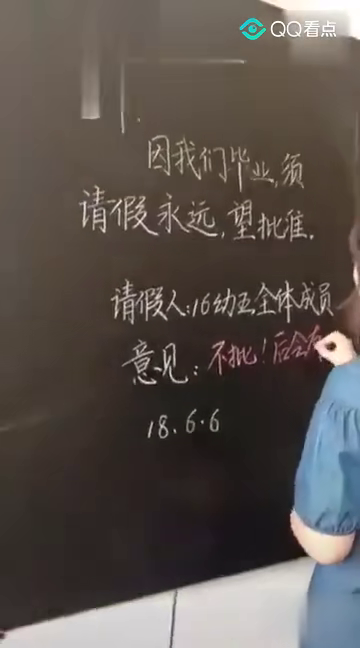 QQ看点
因我们毕业,须
请假永远,望批准.
请假人:16幼五全体成员
意见:不批!后会
18.6.6